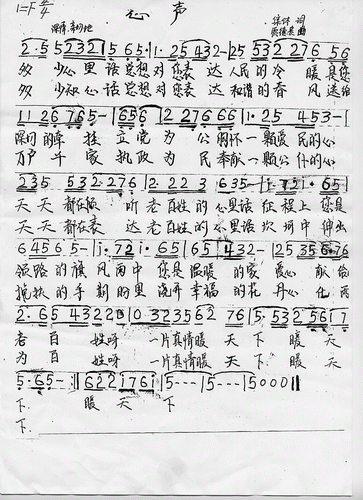 心声
1=F 4/4
深情、亲切地
集体 词
曲
2·55232|565·|1·25432-|25532276 56
多少心里话想对您表达人民的冷暖是您
多少知心话想对您表达和谐的春风送给
1126765-|656|227666|1·25453-|
深切的牵挂立党为公胸怀一颗爱民的心
万户千家执政为民奉献一颗公仆的心
235 532·276|2·223|635-|i·72i·65|
天天都在听老百姓的心里话征程上您是
天天都在表达老百姓的心里话坎坷中伸出
64565-|i·72i·65|65432-|25356676|
领路的旗风雨中您是温暖的家爱心献给
搀扶的手新的里浇开幸福的花丹心化雨
2·6543220|0323562 76|5·532 5617
老百姓呀一片真情暖天下暖天
为百姓呀一片真情暖天下暖天
5·65-:||622176i|5---|5---|5000||
下暖天下
下